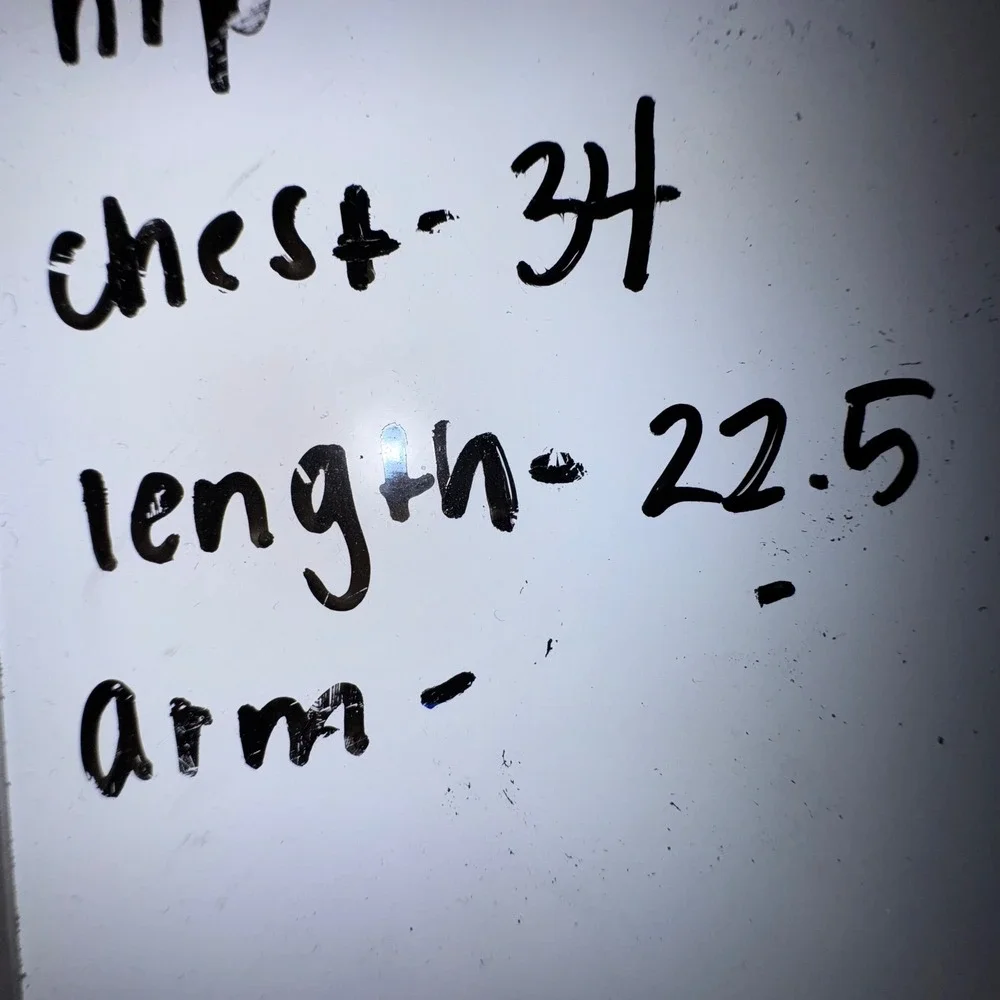 hip
chest- 34
length- 22.5
arm -